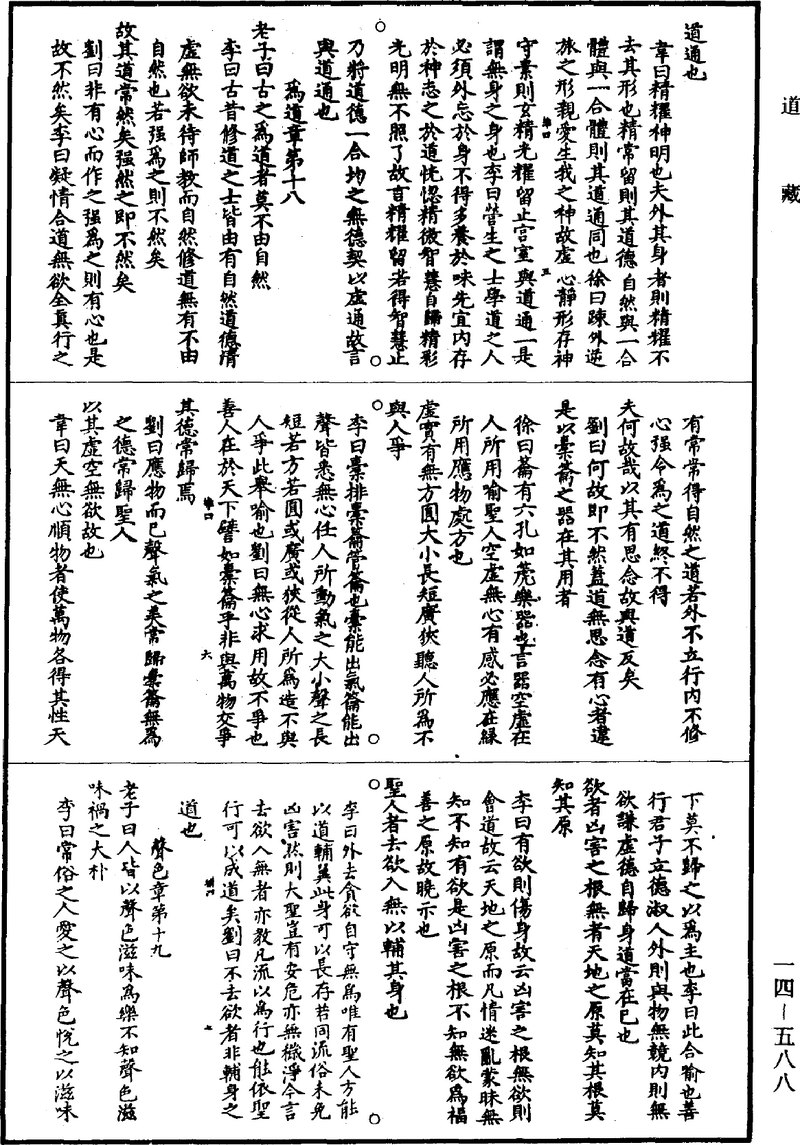 道藏
道通也
韋曰精耀神明也夫外其身者則精耀不
去其形也精常留則其道德自然與一合
體與一合體則其道通同也徐曰踈外逆
旅之形親愛生我之神故虛心靜形存神
守素則玄精光耀留止宫室與道通一是
謂無身之身也李曰營生之士學道之人
必須外忘於身不得多養於味先宜内存
於神志之於道恍惚精微智慧自歸精彩
光明無不照了故言精耀留若得智慧止
乃將道德一合均之無德契以虛通故言
與道通也
爲道章第十八
老子曰古之爲道者莫不由自然
李曰古昔修道之士皆由有自然道德清
虛無欲未待師教而自然修道無有不由
自然也若强爲之則不然矣
故其道常然矣强然之即不然矣
劉曰非有心而作之强爲之則有心也是
故不然矣李曰凝情合道無欲全真行之
有常常得自然之道若外不立行内不修
心强令爲之道終不得
夫何故哉以其有思念故與道反矣
劉曰何故即不然蓋道無思念有心者違
是以橐籥之器在其用者
徐曰籥有六孔如箎樂器也言器空虛在
人所用喻聖人空虛無心有感必應在緣
所用應物處方也
虛實有無方圓大小長短廣狹聽人所爲不
與人爭
李曰橐排橐籥管籥也橐能出氣籥能出
聲皆悉無心任人所動氣之大小聲之長
短若方若圓或廣或狹從人所爲造不與
人爭此舉喻也劉曰無心求用故不爭也
善人在於天下譬如橐籥乎非與萬物交爭
其德常歸焉
劉曰應物而已聲氣之美常歸橐籥無爲
之德常歸聖人
以其虛空無欲故也
韋曰天無心順物者使萬物各得其性天
下莫不歸之以爲主也李曰此合喻也善
行君子立德淑人外則與物無競内則無
欲謙虛德自歸身道當在已也
欲者凶害之根無者天地之原莫知其根莫
知其原
李曰有欲則傷身故云凶害之根無欲則
會道故云天地之原而凡情迷亂蒙昧無
知不知有欲是凶害之根不知無欲爲福
善之原故曉示也
聖人者去欲入無以輔其身也
李曰外去貪欲自守無爲唯有聖人方能
以道輔翼此身可以長存若同流俗未免
凶害然則大聖豈有安危亦無穢淨今言
去欲入無者亦教凡流以爲行也能依聖
行可以成道矣劉曰不去欲者非輔身之
道也
聲色章第十九
老子曰人皆以聲色滋味爲樂不知聲色滋
味禍之大朴
李曰常俗之人愛之以聲色悅之以滋味
一四－五八八